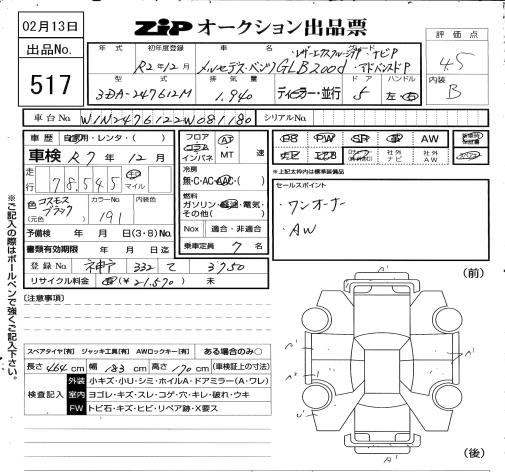 02月13日
出品No.
517
ZIP オークション出品票
評価点
4.5
内装
B
年式 初年度登録 車名 グレード
R2年12月 メルセデス・ベンツ GLB200d レザーエクスクルーシブP ナビP アドバンスドP
型式 排気量 ドア ハンドル
3DA-247612M 1,940 ディーラー・並行 5 左・右
車台No. W1N2476122W081180 シリアルNo.
車歴 自家用・レンタ・( )
車検 R7年12月
走行 78,545 キロ マイル
色(元色) コスモスブラック カラーNo. 191 内装色
予備検 年 月 日(3・8)No.
書類有効期限 年 月 日迄
登録No. 神戸 332 て 3750
リサイクル料金 済(¥21,570) 未
フロア コラム インパネ AT MT 速
冷房 無・C・AC・AAC・( )
燃料 ガソリン・軽油・電気・その他( )
Nox 適合・非適合
乗車定員 7 名
PS PW SR 革 AW
社外ナビ 社外AW
※上記太枠内は標準装備品
セールスポイント
・ワンオーナー
・AW
〔注意事項〕
スペアタイヤ[有] ジャッキ工具[有] AWロックキー[有] ある場合のみ〇
長さ 464 cm 幅 183 cm 高さ 170 cm (車検証上の寸法)
検査記入
外装 小キズ・小U・シミ・ホイルA・ドアミラー(A・ワレ)
室内 ヨゴレ・キズ・スレ・コゲ・穴・キレ・破れ・ウキ
FW トビ石・キズ・ヒビ・リペア跡・X要ス
(前)
(後)
※ご記入の際はボールペンで強くご記入下さい。